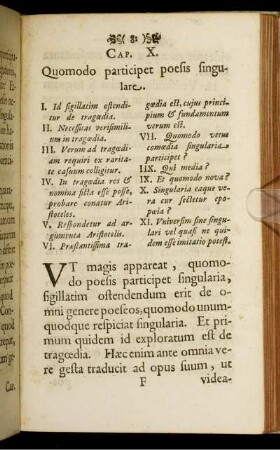 (81)
CAP. X.
Quomodo participet poesis singu-
lare.
I. Id sigillatim ostendi-
tur de tragœdia.
II. Necessitas verisimili-
um in tragœdia.
III. Verum ad tragœdi-
am requiri ex rarita-
te casuum colligitur.
IV. In tragœdia res &
nomina ficta esse posse,
probare conatur Ari-
stoteles.
V. Respondetur ad ar-
gumenta Aristotelis.
VI. Præstantissima tra-
gœdia est, cujus princi-
pium & fundamentum
verum est.
VII. Quomodo vetus
comœdia singularia
participet?
IIX. Qui media?
IX. Et quomodo nova?
X. Singularia eaque ve-
ra cur sectetur epo-
pœia?
XI. Universim sine singu-
lari vel quasi ne qui-
dem esse imitatio potest.
VT magis appareat, quomo-
do poesis participet singularia,
sigillatim ostendendum erit de o-
mni genere poeseos, quomodo unum-
quodque respiciat singularia. Et pri-
mum quidem id exploratum est de
tragœdia. Hæc enim ante omnia ve-
re gesta traducit ad opus suum, ut
F videa-
Cap.